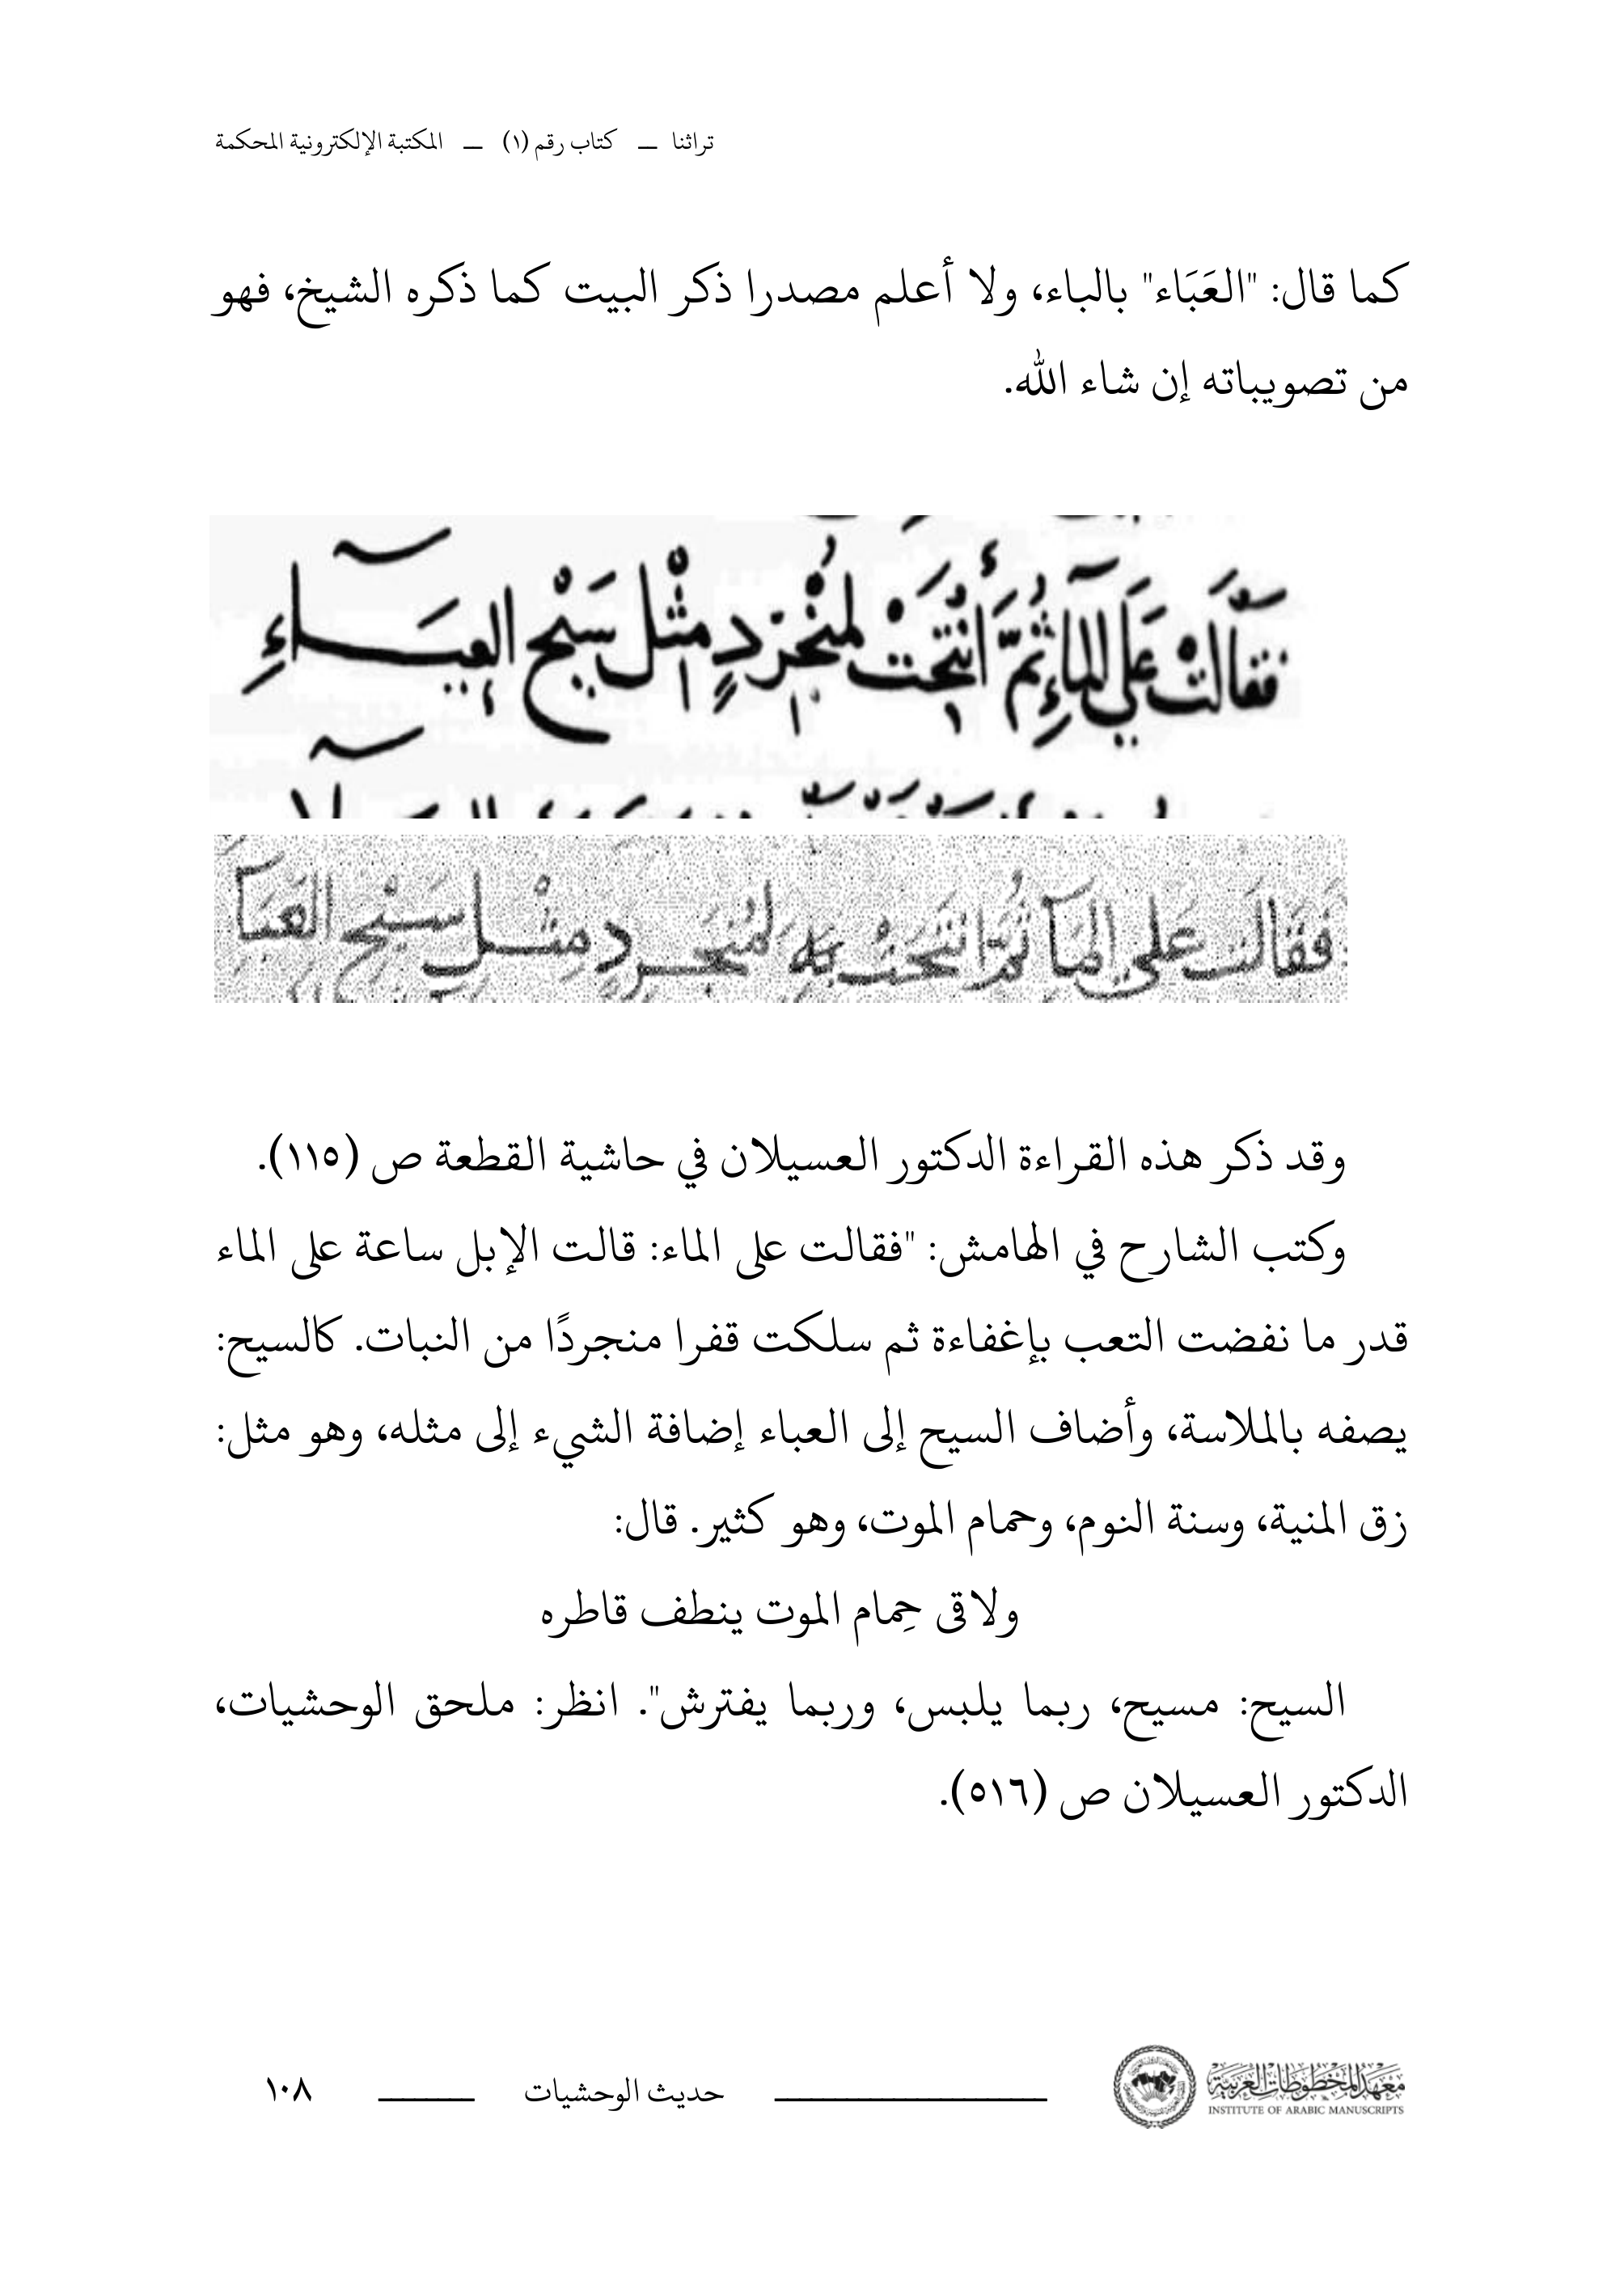 تراثنا ـــ كتاب رقم (١) ـــ المكتبة الإلكترونية المحكمة
كما قال: "العَبَاء" بالباء، ولا أعلم مصدرا ذكر البيت كما ذكره الشيخ، فهو
من تصويباته إن شاء الله.
فقالت على الماءِ ثُمَّ أنتحَتْ لمنْجَرِدٍ مثْلِ سَيْحِ العِبَاءِ
فَقَالَت على المَآ ثُمَّ انتَحَتْ بِهِ لمُنجَرِدٍ مِثْلِ سَيْحِ العَبَآ
وقد ذكر هذه القراءة الدكتور العسيلان في حاشية القطعة ص (١١٥).
وكتب الشارح في الهامش: "فقالت على الماء: قالت الإبل ساعة على الماء
قدر ما نفضت التعب بإغفاءة ثم سلكت قفرا منجردًا من النبات. كالسيح:
يصفه بالملاسة، وأضاف السيح إلى العباء إضافة الشيء إلى مثله، وهو مثل:
زق المنية، وسنة النوم، وحمام الموت، وهو كثير. قال:
ولاقى حِمام الموت ينطف قاطره
السيح: مسيح، ربما يلبس، وربما يفترش". انظر: ملحق الوحشيات،
الدكتور العسيلان ص (٥١٦).
معهد المخطوطات العربية
INSTITUTE OF ARABIC MANUSCRIPTS
حديث الوحشيات
١٠٨